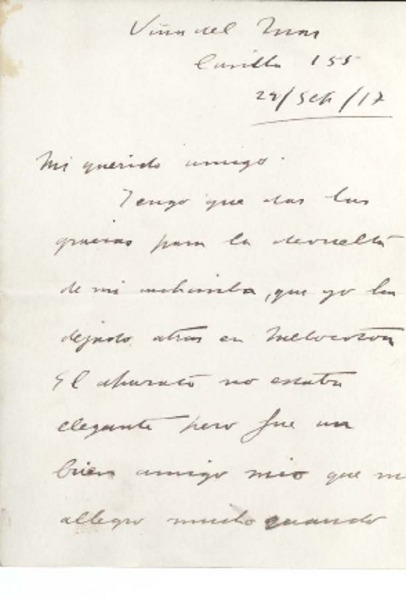 Viña del Mar
Casilla 155
22/Set/17
Mi querido amigo.
Tengo que das las
gracias para la devuelta
de mi cachimba, que yo ha
dejado atras en Melocoton
El aparato no estaba
elegante pero fue un
bien amigo mio que me
allegro mucho cuando